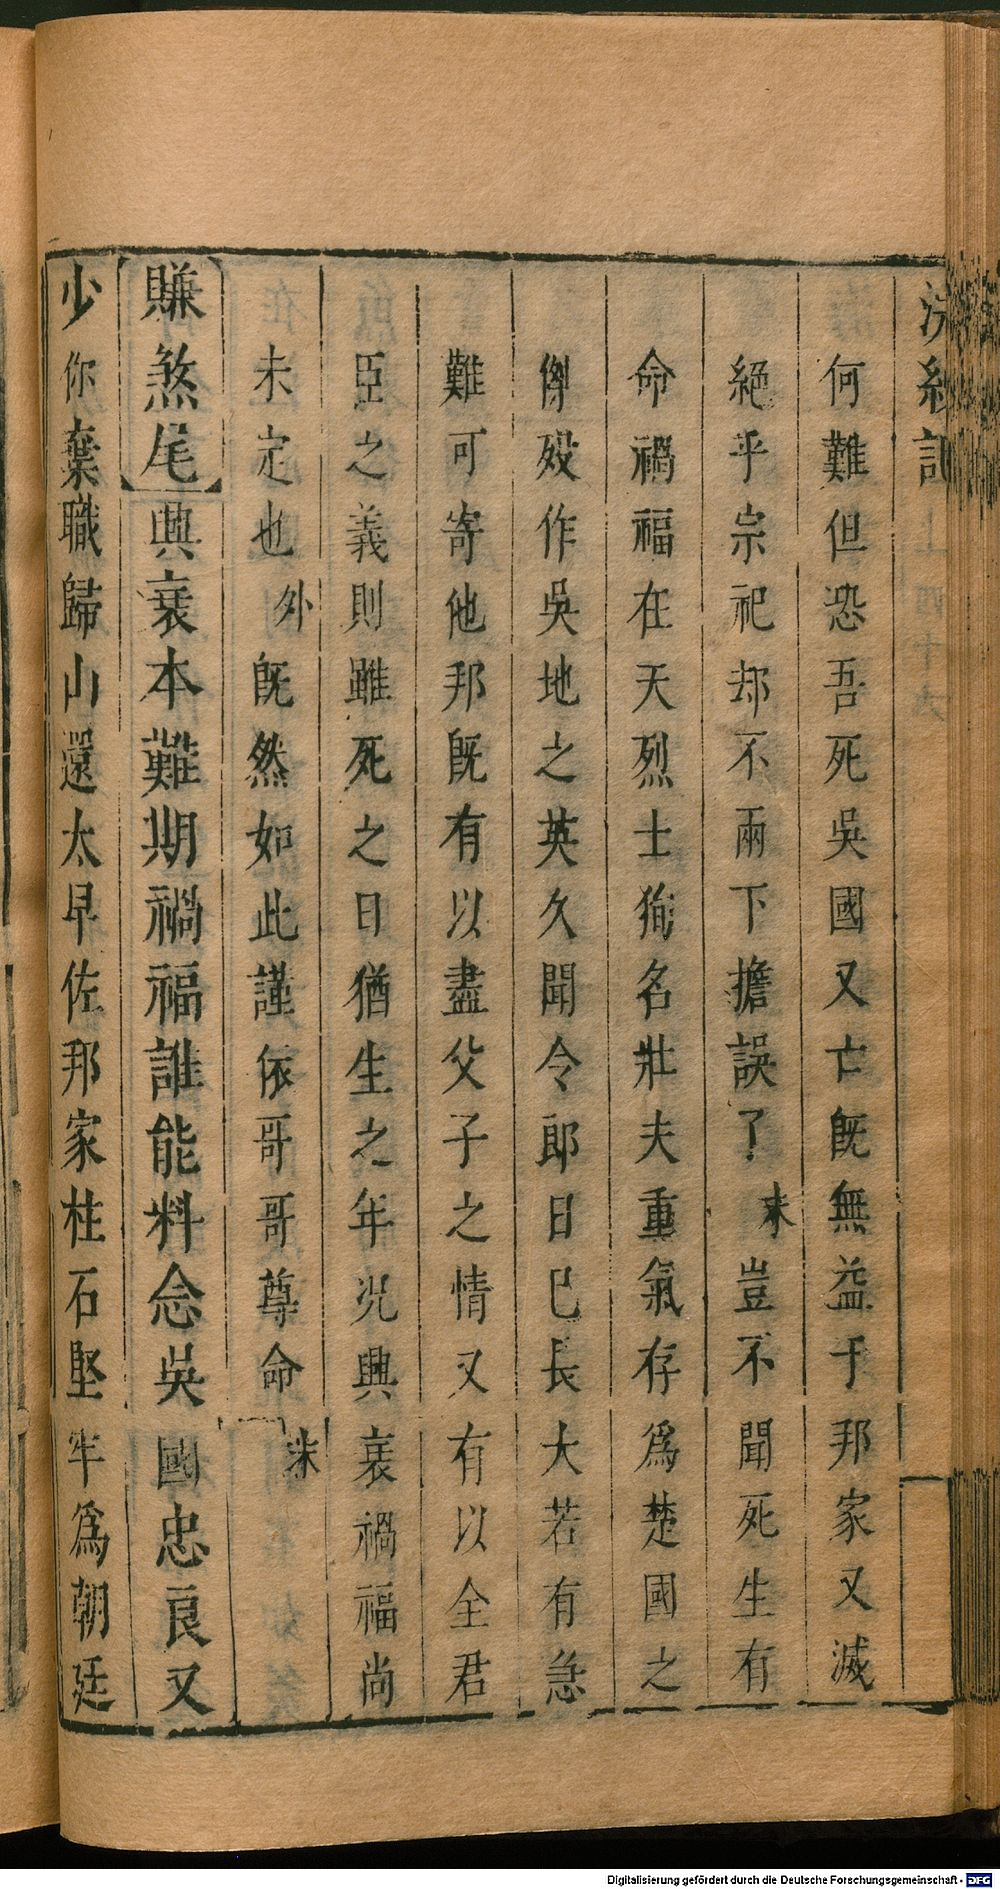 浣紗記
何難但恐吾死吳國又亡旣無益于邦家又滅
絕乎宗祀却不兩下擔誤了末豈不聞死生有
命禍福在天烈士狥名壯夫重氣存爲楚國之
歿作吳地之英久聞令郎日已長大若有急
難可寄他邦旣有以盡父子之情又有以全君
臣之義則雖死之日猶生之年况興衰禍福尚
未定也外旣然如此謹依哥哥尊命末
賺煞尾興衰本難期禍福誰能料念吳國忠良又
少你棄職歸山還太早佐邦家柱石堅牢爲朝廷
Digitalisierung gefördert durch die Deutsche Forschungsgemeinschaft - DFG